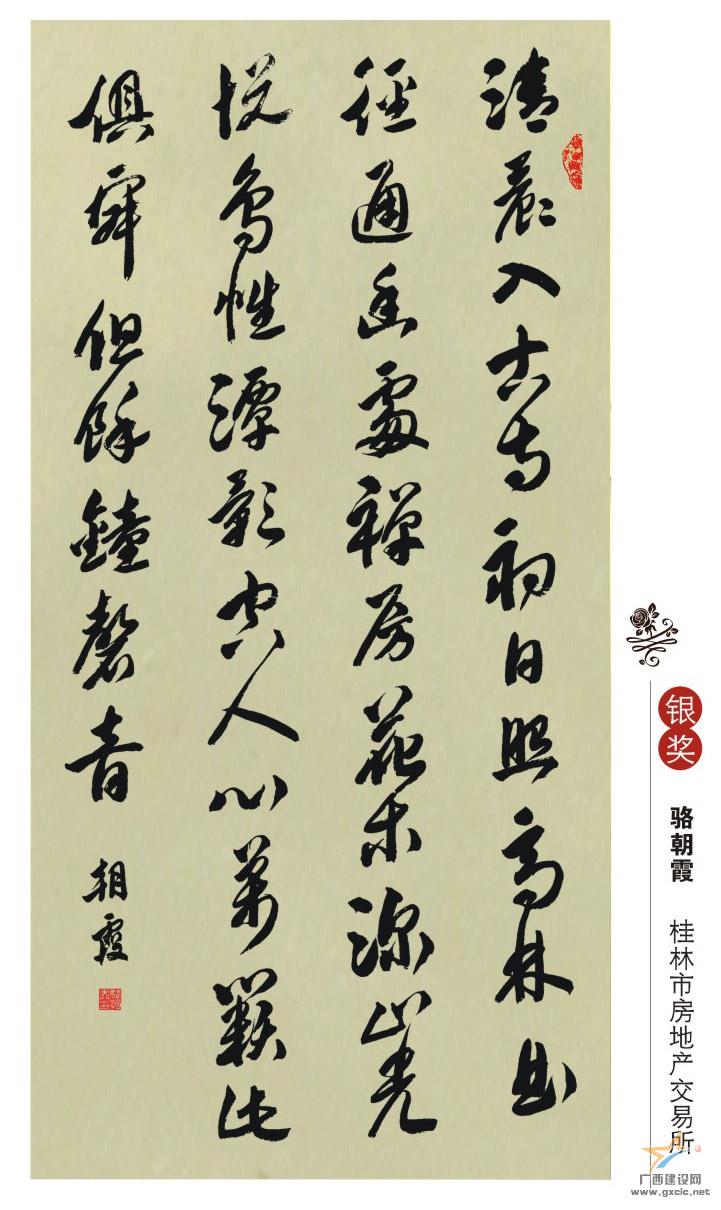 清晨入古寺初日照高林曲
徑通幽處禪房花木深山光
悅鳥性潭影空人心萬籟此
俱寂但餘鐘磬音
朝霞
银奖
骆朝霞 桂林市房地产交易所
广西建设网
www.gxcic.net